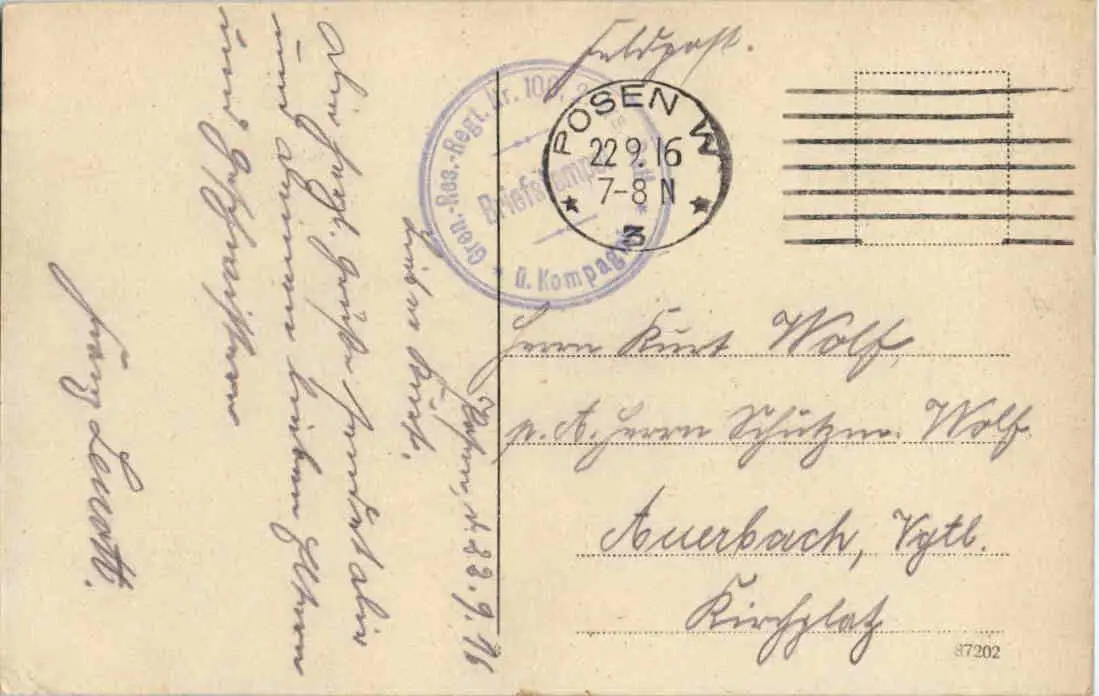 Feldpost.
POSEN W
22.9.16
7-8 N
3
Gren.-Res.-Regt. Nr. 100,
Briefstempel
Kompagnie
Herrn Kurt Wolf,
p. A. Herrn Schutzm. Wolf
Auerbach, Vgtl.
Kirchplatz
87202
Posen, d. 22.9.16
Lieber Kurt,
herzl. Grüße sendet dir
und deinen lieben Eltern
und Geschwistern